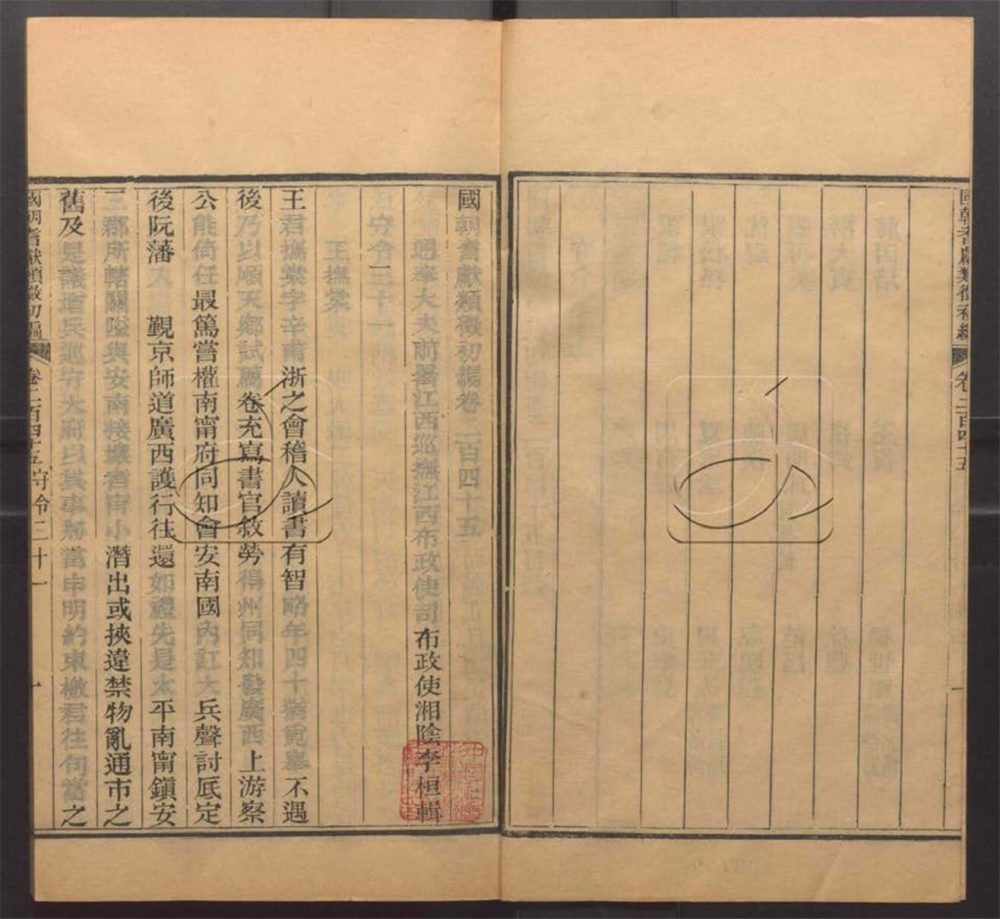 國朝耆獻類徵初編 卷二百四十五 一
國朝耆獻類徵初編卷二百四十五
通奉大夫前署江西巡撫江西布政使司布政使湘陰李桓輯
守令三十一
王撫棠
王君撫棠字辛甫浙之會稽人讀書有智略年四十猶不遇
後乃以順天鄉試謄卷充寫書官敘勞得州同知發廣西上游察
公能倚任最篤嘗權南甯府同知會安南國內訌大兵聲討厎定
後阮藩入 覲京師道廣西護行往還如禮先是太平南甯鎮安
三郡所轄關隘與安南接壤者宵小潛出或挾違禁物亂通市之
舊及是議增兵巡守大府以其事當申明約束檄君往句當之
國朝耆獻類徵初編 卷二百四十五 守令三十一 一